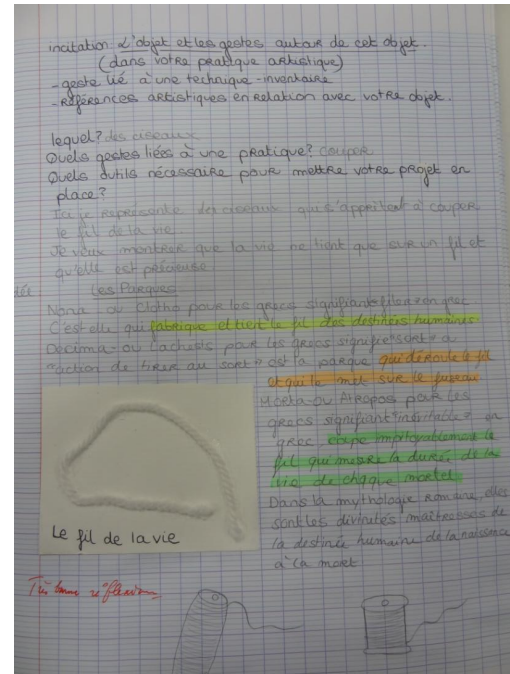 incitation: L'objet et les gestes autour de cet objet.
(dans votre pratique artistique)
- geste lié à une technique - inventaire
- Références artistiques en relation avec votre objet.
lequel? des ciseaux
Quels gestes liées à une pratique? couper
Quels outils nécessaire pour mettre votre projet en
place?
Ici je représente des ciseaux qui s'apprêtent à couper
le fil de la vie
Je veux montrer que la vie ne tient que sur un fil et
qu'elle est précieuse
Les Parques
Nona ou Clotho pour les grecs signifiant filer en grec
C'est elle qui fabrique et tient le fil des destinées humaines
Decima ou Lachesis pour les grecs signifie "sort" a
"action de tirer au sort" est la parque qui déroule le fil
et qui le met sur le fuseau
Morta ou Atropos pour les
grecs signifiant "inévitable" en
grec coupe impitoyablement le
fil qui mesure la durée de la
vie de chaque mortel
Dans la mythologie Romaine, elles
sont les divinités maîtresses de
la destinée humaine de la naissance
à la mort
Le fil de la vie
Très bonne réflexion